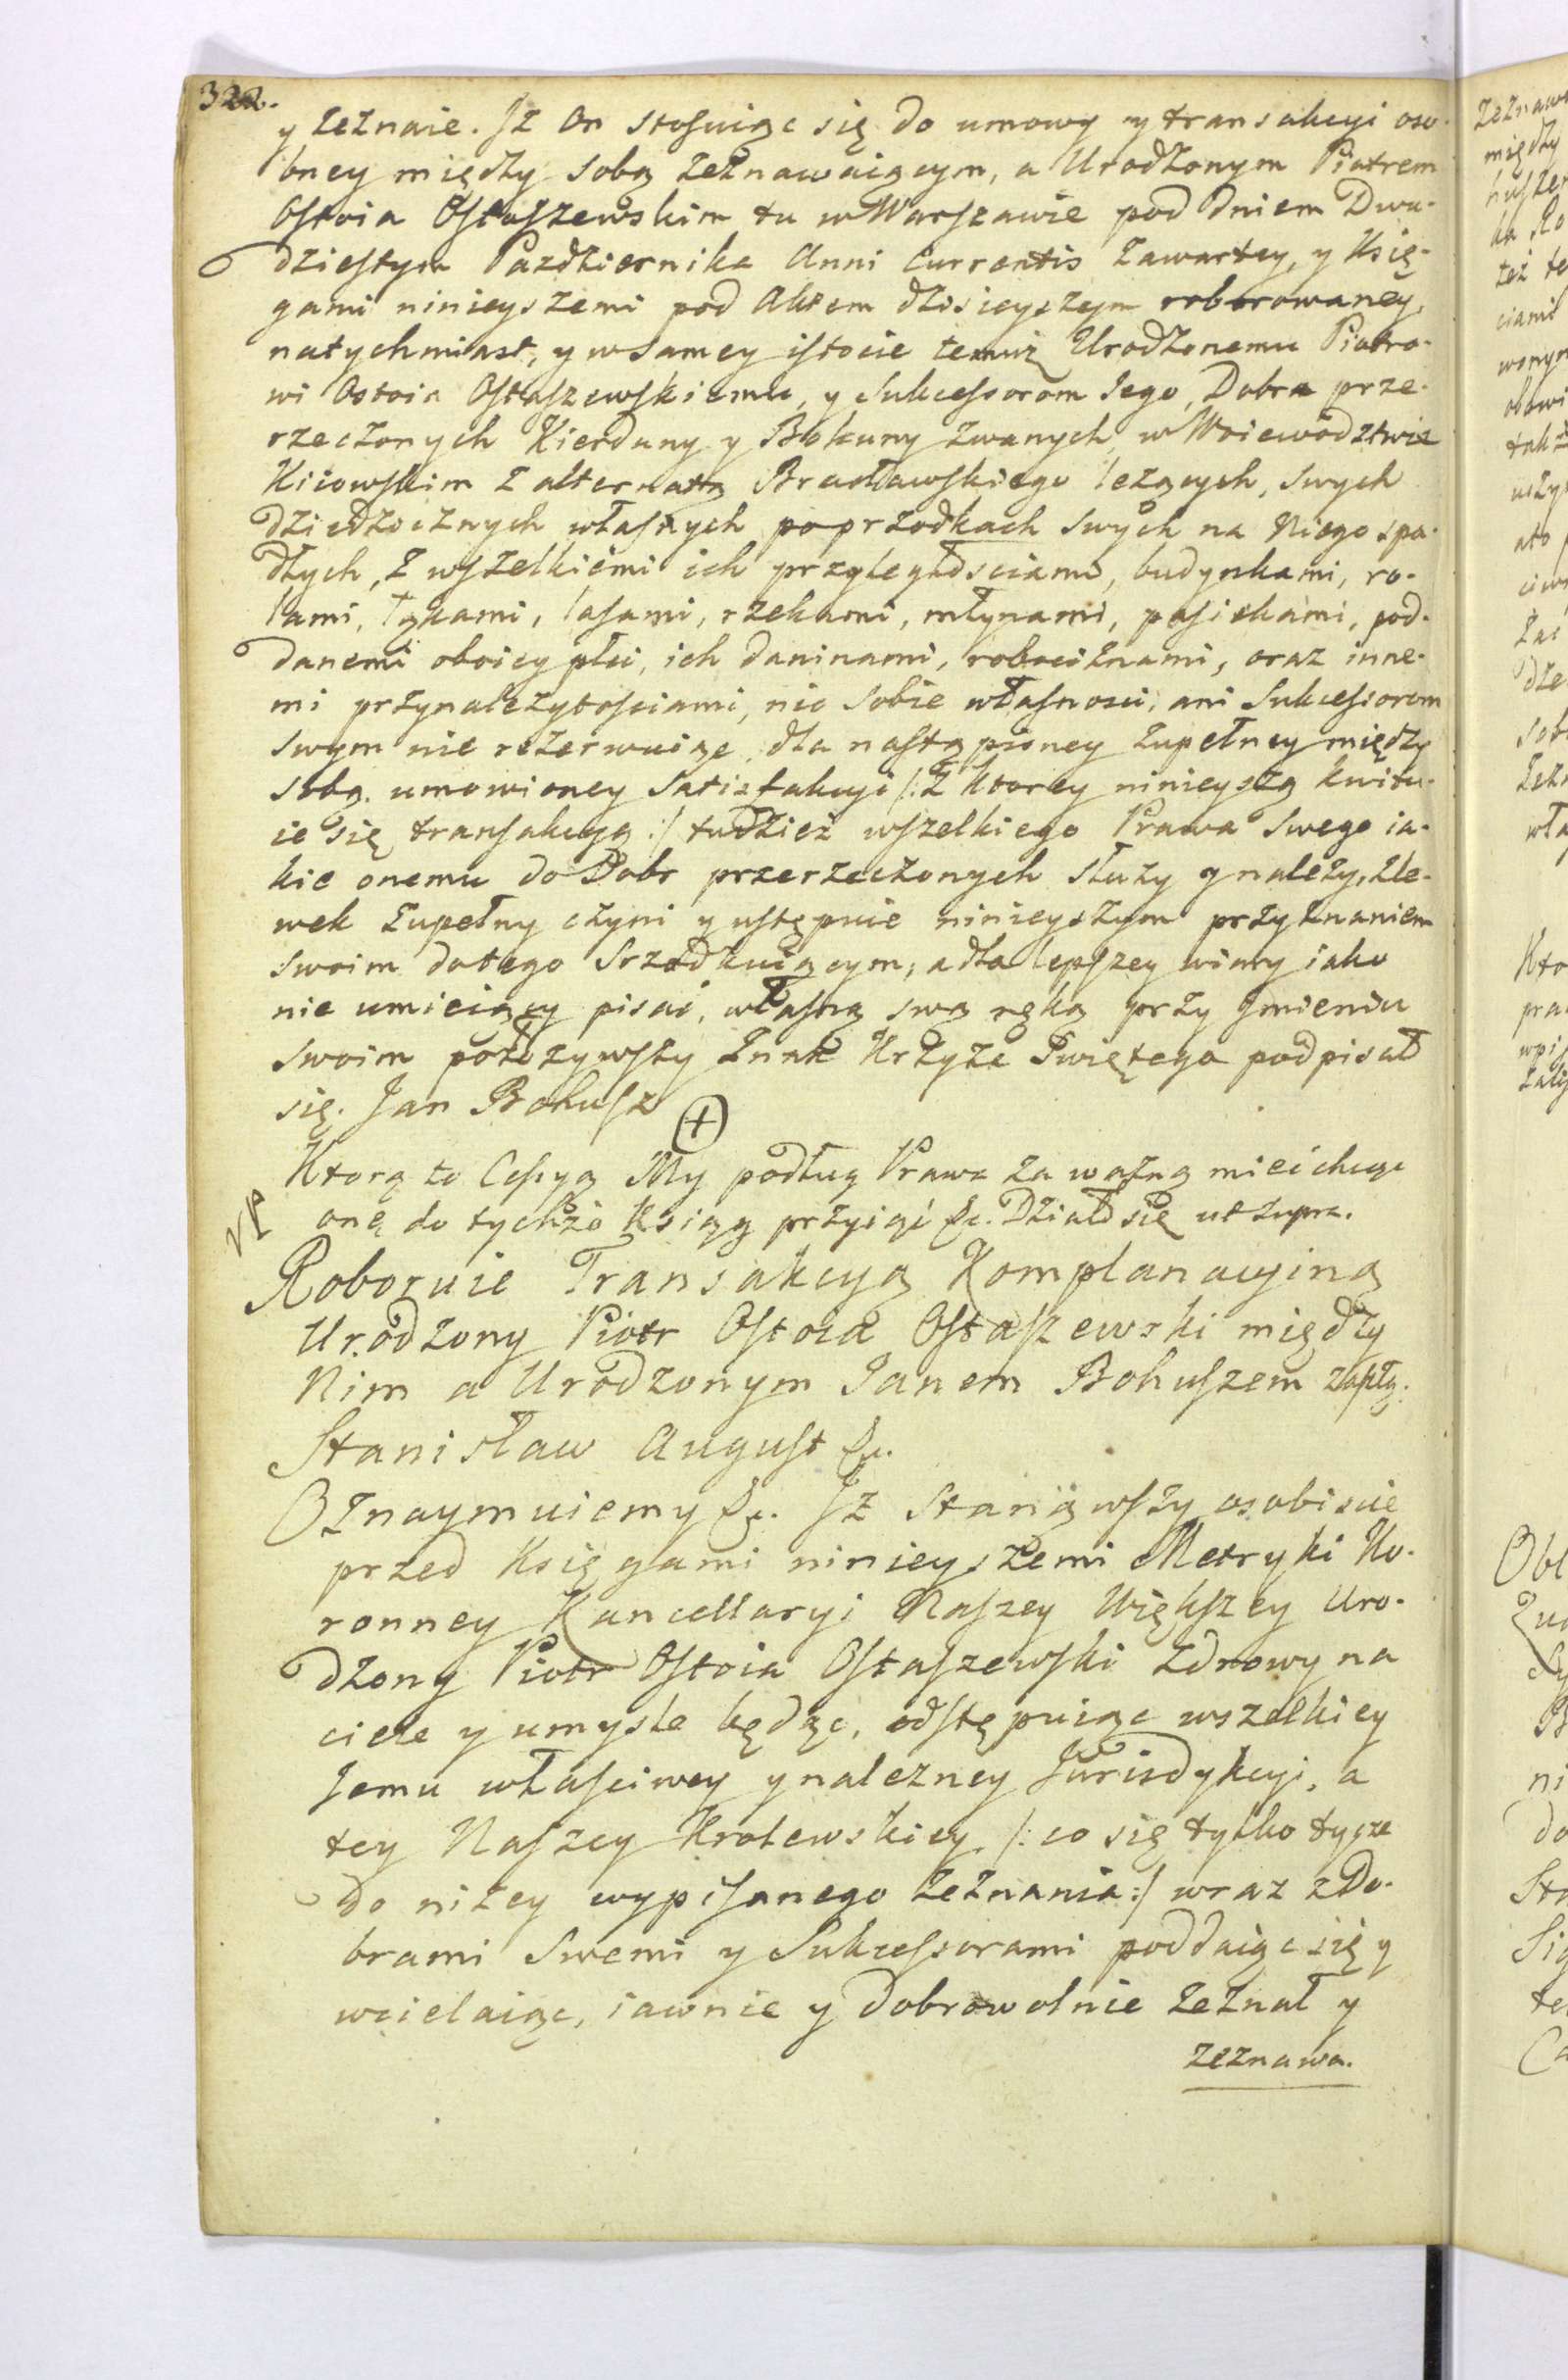 322.
y zeznaie. Jż on stosuiąc się do umowy y transakcyi oso-
bney między sobą zeznawaiącym, a Urodzonym Piotrem
Ostoia Ostaszewskim tu w Warszawie pod dniem Dwu-
dziestym Pazdziernika Anni Currentis zawartey, y Ksie-
gami ninieyszemi pod Aktem dzisieyszym roborowaney,
natychmiast, y w samey istocie temuż Urodzonemu Piotro-
wi Ostoia Ostaszewskiemu, y Sukcessorom Jego, Dobra prze-
rzeczonych Kierduny y Bokuny zwanych w Woiewodztwie
Kiiowskim z alternatą Bracławskiego leżących, swych
dziedzicznych własnych po przodkach swych na Niego spa-
dłych, z wszelkiemi ich przyległosciami, budynkami, ro-
lami, łąkami, lasami, rzekami, młynami, pasiekami, pod-
danemi oboiey płci, ich daninami, robociznami, oraz inne-
mi przynależytosciami, nic sobie własnosci, ani Sukcessorom
swym nie rezerwuiąc, dla nastąpioney zupełney między
sobą umowioney Satisfakcyi /: z ktorey ninieyszą kwitu-
ie się transakcyą :/ tudzież wszelkiego Prawa swego ia-
kie onemu do Dobr przerzeczonych służy y należy, zle-
wek zupełny czyni y ustępuie ninieyszym przyznaniem
swoim do tego srzodkuiącym, a dla lepszey wiary iako
nie umieiący pisać, własną swą ręką przy Jmieniu
swoim położywszy znak Krzyża Swiętego podpisał
się. Jan Bohusz +
Ktorą to Cessyą My podług Prawa za ważną mieć chcąc
onę do tychże Xsiąg przyiąć &c. Działo się ut supra.
Roboruie Transakcyą Komplanacyiną
Urodzony Piotr Ostoia Ostaszewski między
Nim a Urodzonym Janem Bohuszem zaszłą.
Stanisław August &c.
Oznaymuiemy &c. Jż stanąwszy osobiscie
przed Księgami ninieyszemi Metryki Ko-
ronney Kancellaryi Naszey Większey Uro-
dzony Piotr Ostoia Ostaszewski zdrowy na
ciele y umysle będąc, odstępuiąc wszelkiey
Jemu własciwey y należney Jurisdykcyi, a
tey Naszey Krolewskiey /: co się tylko tycze
do niżey wypisanego zeznania :/ wraz z Do-
brami swemi y Sukcessorami poddaiąc się y
wcielaiąc, iawnie y dobrowolnie zeznał y
zeznawa.